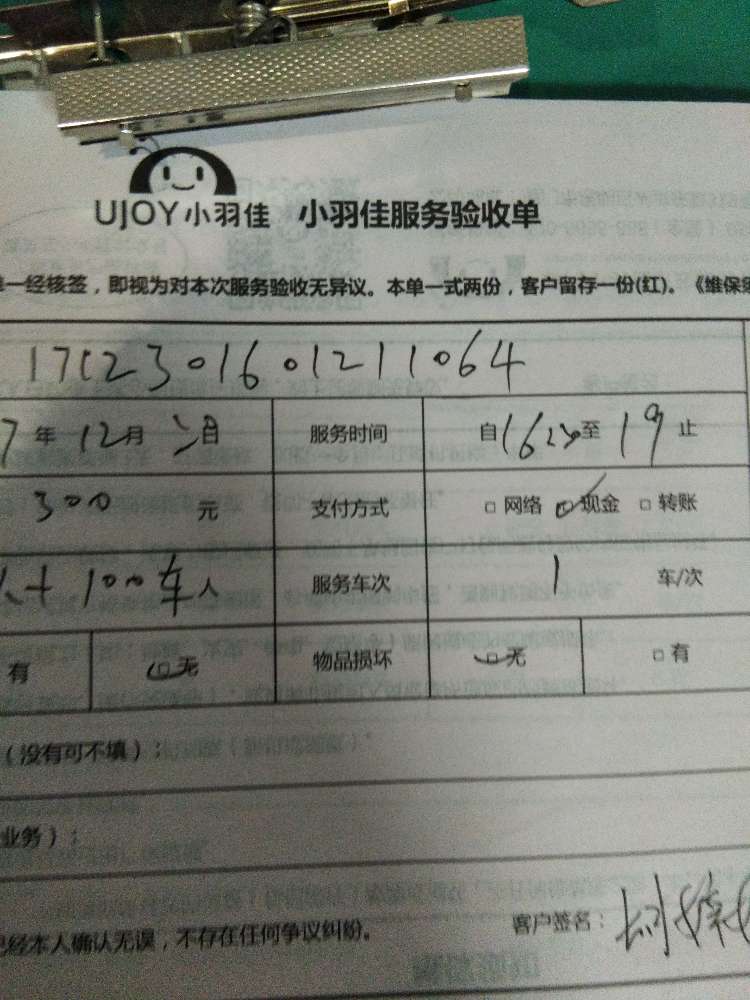 UJOY小羽佳 小羽佳服务验收单
单一经核签，即视为对本次服务验收无异议。本单一式两份，客户留存一份(红)。《维保
17C2301601211064
7 年 12月 日 服务时间 自 1620 至 19 止
300 元 支付方式 □ 网络 □ 现金 □ 转账
人+100车 人 服务车次 1 车/次
有 □ 无 物品损坏 □ 无 □ 有
（没有可不填）：
业务）：
已经本人确认无误，不存在任何争议纠纷。 客户签名：